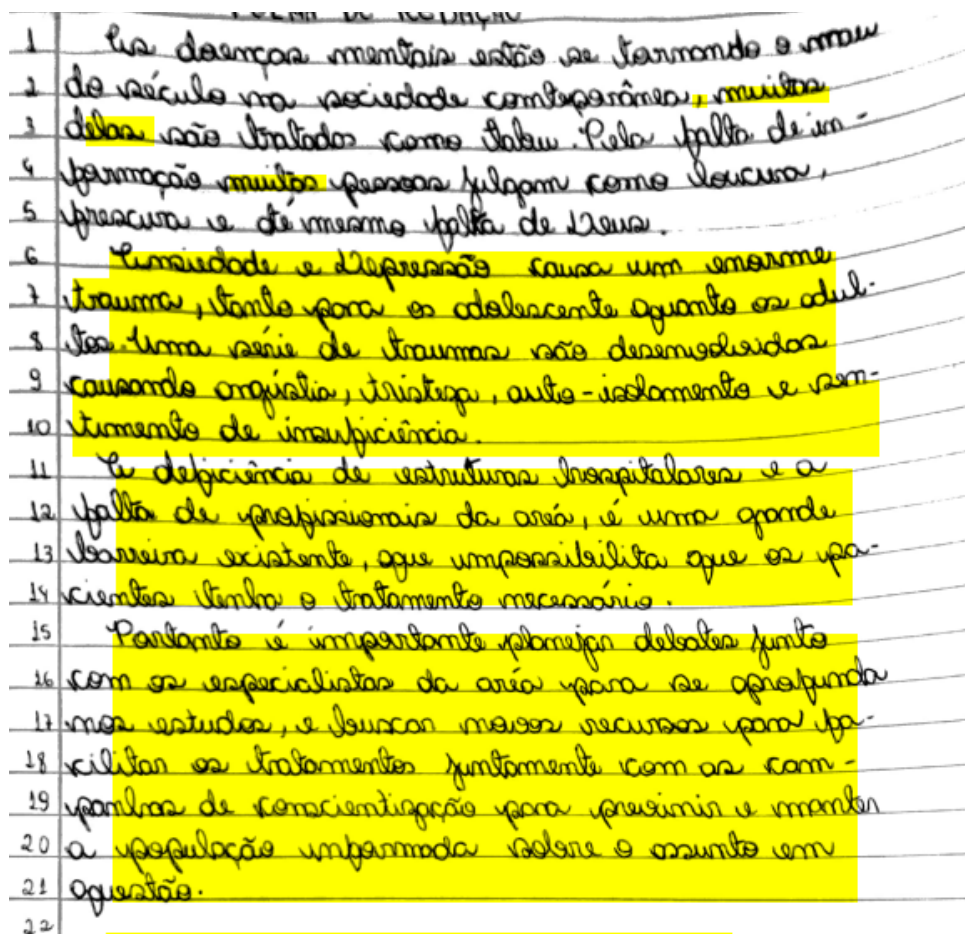 FOLHA DE REDAÇÃO
1 As doenças mentais estão se tornando o mau
2 do século na sociedade comteporânea, muitas
3 delas são tratados como tabu. Pela falta de in-
4 formação muitas pessoas julgam como loucura,
5 frescura e até mesmo falta de Deus.
6 Ansiedade e Depressão causa um enorme
7 trauma, tanto para os adolescente quanto os adul-
8 tos. Uma série de traumas são desenvolvidos
9 causando angústia, tristeza, auto-isolamento e sen-
10 timento de insuficiência.
11 A deficiência de estruturas hospitalares e a
12 falta de profissionais da areá, é uma grande
13 barreira existente, que impossibilita que os pa-
14 cientes tenha o tratamento necessário.
15 Portanto é importante planejar debates junto
16 com os especialistas da areá para se aprofunda
17 nos estudos, e buscar novos recursos para fa-
18 cilitar os tratamentos juntamente com as cam-
19 panhas de conscientização para previnir e manter
20 a população informada sobre o assunto em
21 questão.
22